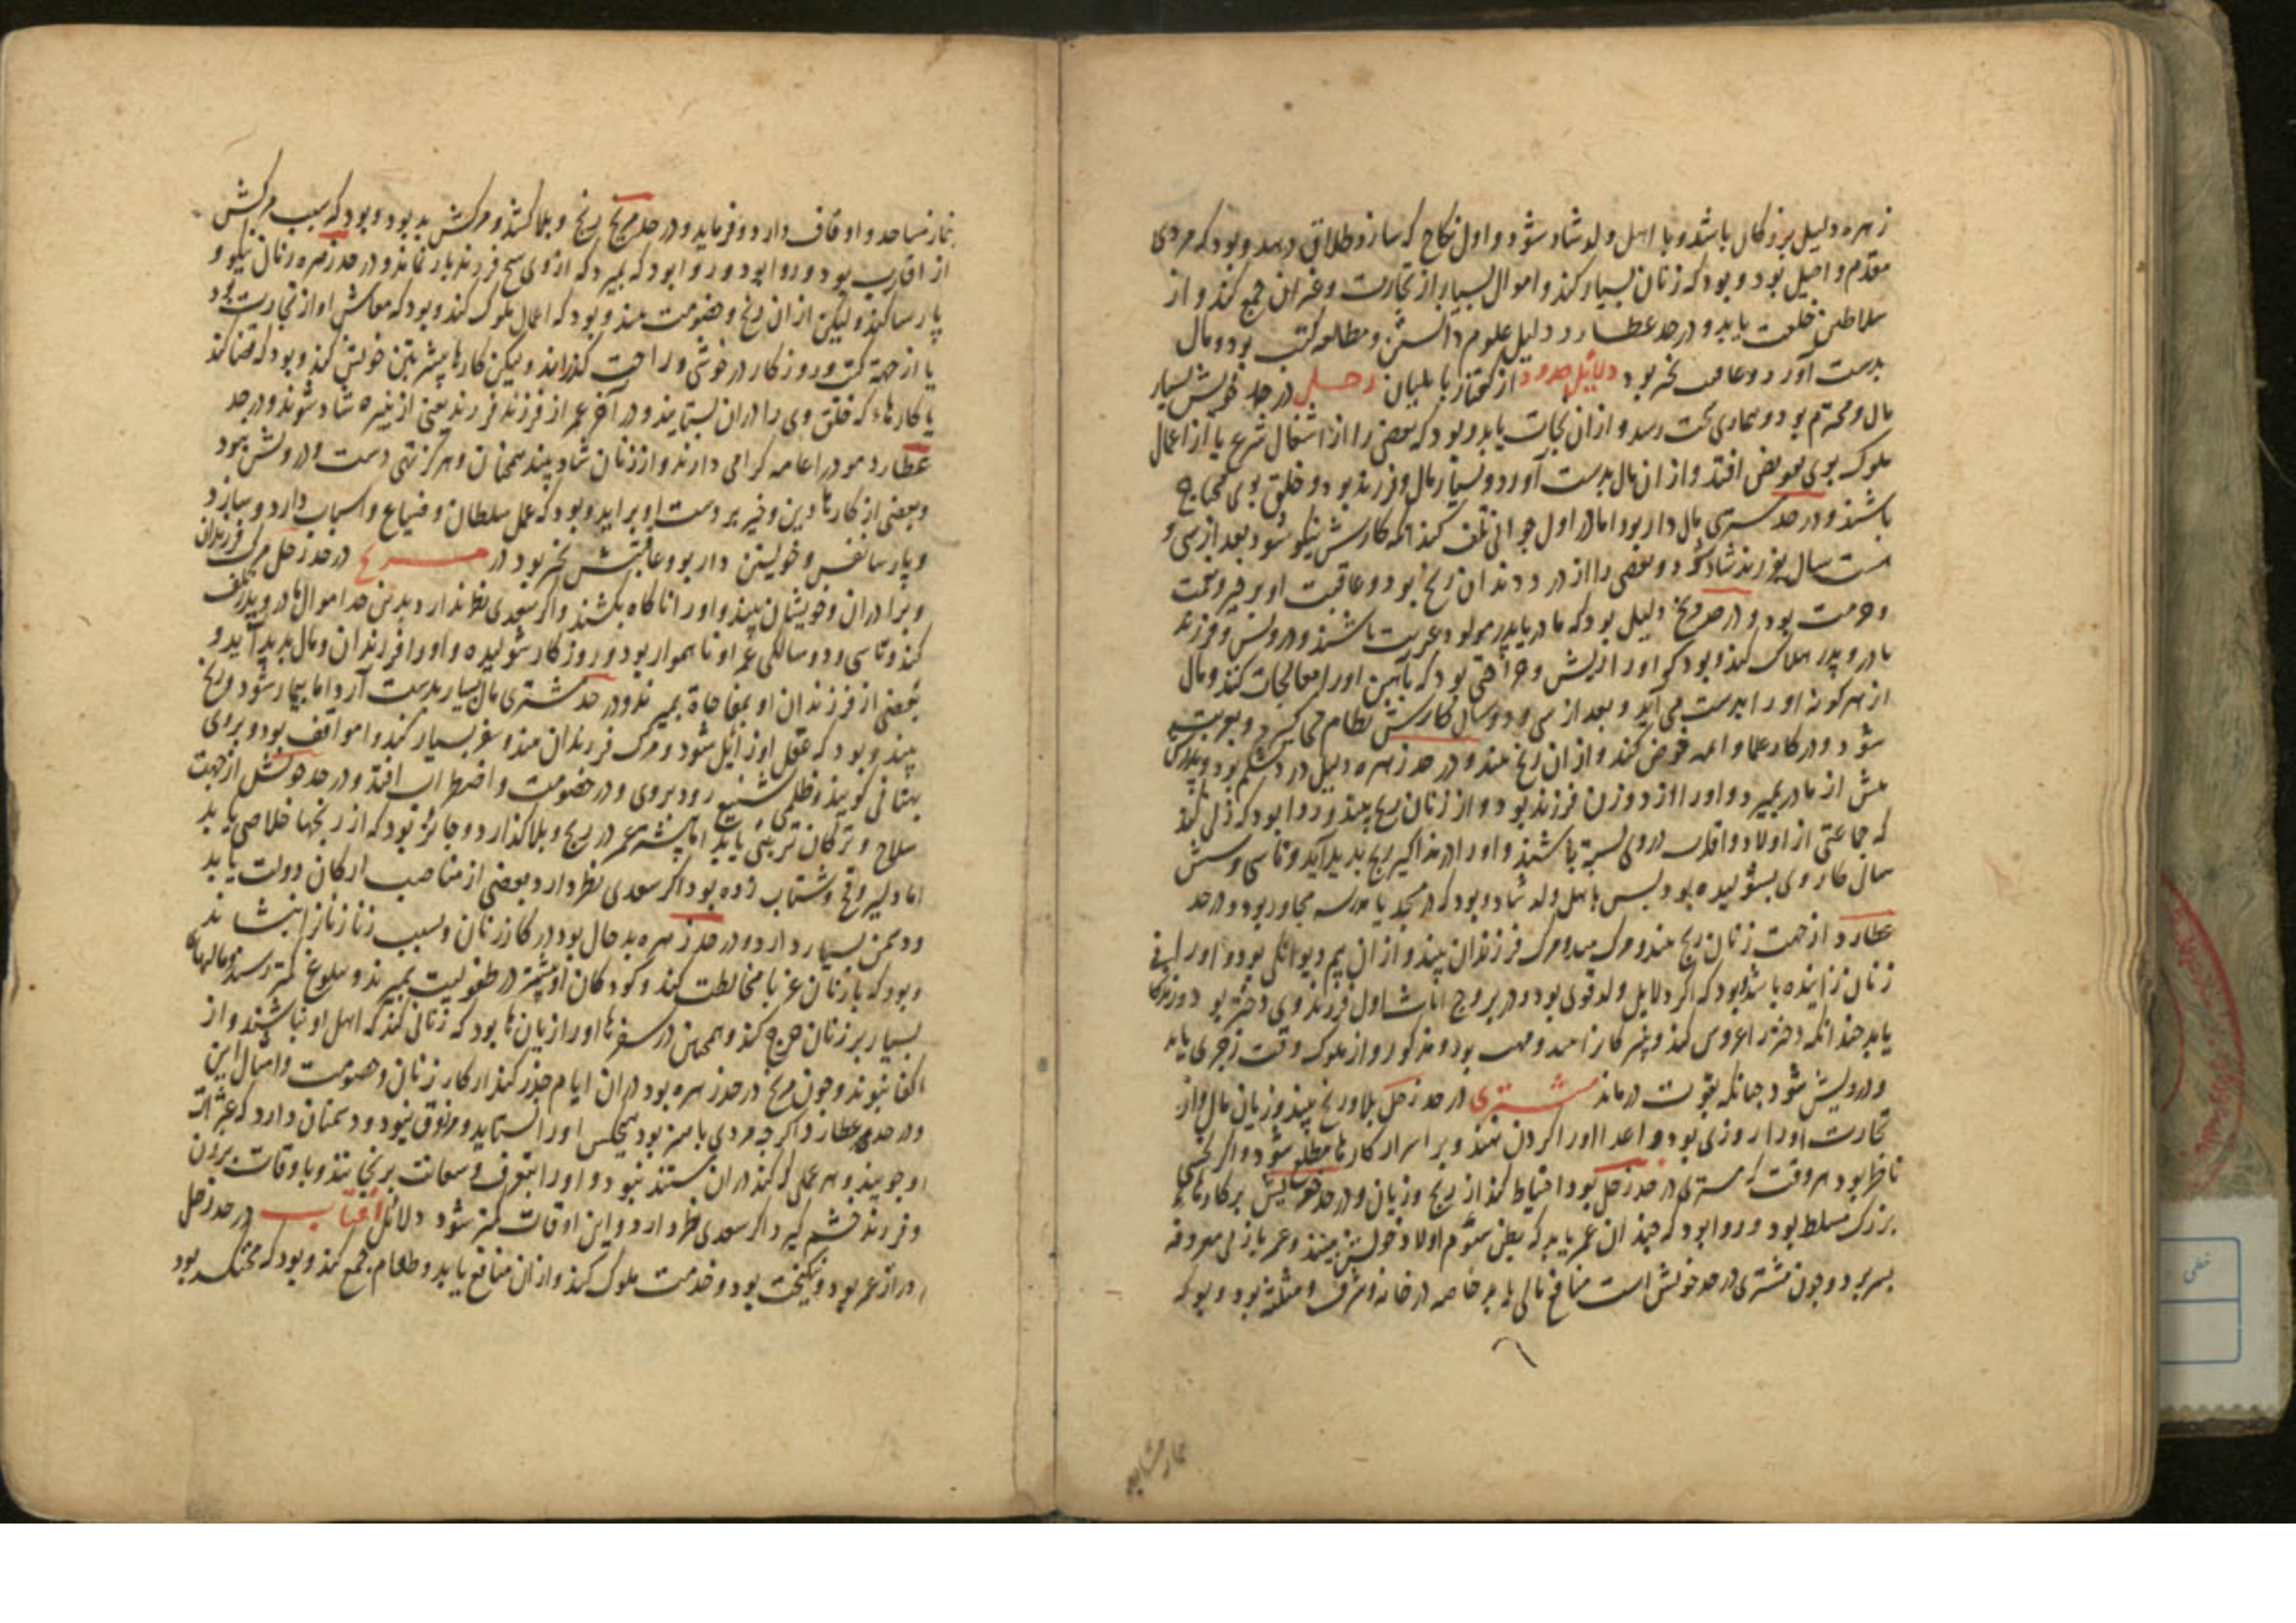 زهره دلیل بزرگان باشد و با اهل و ولد شاد شود و اول نکاح که سازد طلاق دهد و بود که مردی
مقدم و اصیل بود و بود که زنان بسیار کند و اموال بسیار از تجارت و غیر آن جمع کند و از
سلاطین خلعت یابد و در حد عطارد دلیل علوم دانستن و مطالعه کتب بود و مال
بدست آورد و عاقبت بخیر بود دلائل حدود از گفتار بابلیان زحل در حد خویش بسیار
مال و محترم بود و بیماری سخت رسد و از آن نجات یابد و بود که بعضی را از اشغال شرع یا از اعمال
ملوک بوی تعویض افتد و از آن مال بدست آورد و بسیار مال و فرزند بود و خلق بوی محتاج
باشند و در حد مشتری مال دار بود اما در اول جوانی تلف کند آنگه کارش نیکو شود بعد از سی و
سال بفرزند شاد شود و بعضی را از درد دندان رنج بود و عاقبت او بر خیر و نعمت
و حرمت بود و در حد مریخ دلیل بود که مادر یا پدر مولود غریب باشند و درویش و فرزند
مادر و پدر هلاک کند و بود که او را ریش و جراحتی بود که بآهن او را معالجات کند و مال
از هر گونه او را بدست می آید و بعد از سی و دو سال کارش نظام گیرد
شود و در کار علما و ائمه خوض کند و از آن رنج بیند و در حد زهره دلیل درد شکم بود و پدرش
پیش از مادر بمیرد و او را از دو زن فرزند بود و از زنان رنج بیند و روا بود که زنی کند
که جماعتی از اولاد و اقارب در وی بسته باشند و او را در مذاکیر رنج پدید آید و تا سی و شش
سال کار وی بشولیده بود پس با اهل و ولد شاد و بود که در مسجد یا مدرسه مجاور بود و در حد
عطارد از جهت زنان رنج بیند و مرگ فرزندان بیند و از آن بیم دیوانگی بود و او را از
زنان زاینده باشد و بود که اگر دلایل ولد قوی بود و در بروج اناث اول فرزند وی دختر بود
یابد چندانکه دختر را عروس کند و پسر کارزاهد و مهیب بود و مذکور و از ملوک وقت زجری یابد
و درویش شود چنانکه بقوت درماند مشتری در حد زحل بلا و رنج بیند و زیان مال و از
تجارت او را روزی بود و اعدا او را گردن نهند و بر اسرار کارها مطلع شود و اگر نحسی
ناظر بود هر وقت که مشتری در حد زحل بود احتیاط کند از رنج و زیان و در حد خویش بر کارهای
بزرگ مسلط بود و روا بود که چندان عمر یابد که بطن سوم اولاد خویش بیند و عمر بازنی معروفه
بسر برد و چون مشتری در حد خویش است منافع مالی یابد خاصه در خانه و شرف و مثلثه بود و بود که
نماز مساجد
نماز مساجد و اوقاف دارد و فرماید و در حد مریخ رنج و بلا کشد و مرگش بد بود و بود که سبب مرگش
از اقارب بود و روا بود و روا بود که بمیرد که از وی هیچ فرزند باز نماند و در حد زهره زنان نیکو و
پارسا کند و لیکن از آن رنج و خصومت بیند و بود که اعمال ملوک کند و بود که معاش او از تجارت بود
یا از جهة کتب و روزگار در خوشی و راحت گذراند و لیکن کارها بیشتر بتن خویش کند و بود که قضا کند
یا کارهاء که خلق وی را در آن بستایند و در آخر عمر از فرزند فرزند یعنی از نبیره شاد شوند و در حد
عطارد مردم او را عامه گرامی دارند و از زنان شاد بیند همچنان و هرگز تهی دست و درویش نبود
و بعضی از کارهاء دین و خیر بر دست او برآید و بود که عمل سلطان و ضیاع و اسباب دارد و سازد
و پارسا نفس و خویشتن دار بود عاقبتش بخیر بود در مریخ در حد زحل مرگ فرزندان
و برادران و خویشان بیند و او را ناگاه بکشند و اگر سعدی نظر ندارد بدترین حد اموال مادر و پدر تلف
کند و تا سی و دو سالگی عمر او ناهموار بود و روزگار شولیده و او را فرزندان و مال پدید آید و
بعضی از فرزندان او بمفاجاة بمیرند و در حد مشتری مال بسیار بدست آرد اما بیمار شود و رنج
بیند و بود که عقل او زایل شود و مرگ فرزندان بیند و سفر بسیار کند و اموال تلف بود و بروی
بهتانی گویند و ظلمی شنیع رود بروی و در خصومت و اضطراب افتد و در حد خویش از جهت
سلاح و ترکان تربیتی یابد اما بیشتر عمر در رنج و بلا گذارد و جائز بود که از رنجها خلاصی یابد
اما دلیر و شتاب زده بود اگر سعدی نظر دارد بعضی از مناصب ارکان دولت یابد
و دشمن بسیار دارد و در حد زهره بد حال بود در کار زنان و بسبب زنا زنان را بنشاند
و بود که با زنان غربا مخالطت کند و کودکان او بیشتر در طفولیت بمیرند و ببلوغ کمتر رسند
بسیار بر زنان خرج کند و همچنین در سفرها او را زیان ها بود که زنانی کند که اهل او نباشند و از
اکفا نبوند و چون مریخ در حد زهره بود در آن ایام حذر کند از کار زنان و خصومت و امثال این
و در حد عطارد اگر چه مردی با هنر بود هیچکس او را نستاید و مرزوق نبود و دشمنان دارد که عثرات
او جویند و هر عملی که کند در آن مستفید نبود و او را بتعرف و سعایت برنجانند و با وقات بردن
و فرزند خشم گیرد اگر سعدی نظر دارد و این اوقات کمتر شود دلائل آفتاب در حد زحل
دراز عمر بود و نیکبخت بود و خدمت ملوک کند و از آن منافع یابد و طعام جمع کند و بود که محتکر بود
خطی